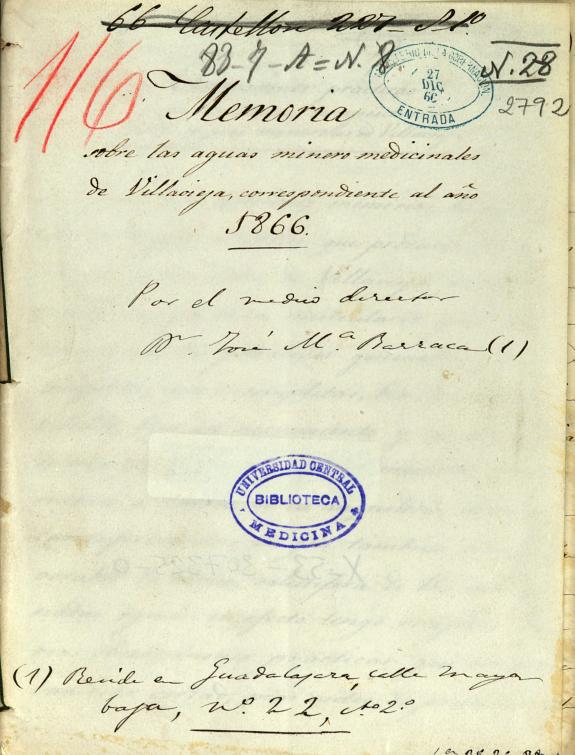 66 Castellon 227 - A-1º
116
83-7-A=N.8
N.28
2792
27
DIC
66
ENTRADA
Memoria
sobre las aguas minero medicinales
de Villavieja, correspondiente al año
1866.
Por el medico director
Dr. José Mª Barraca (1)
UNIVERSIDAD CENTRAL
BIBLIOTECA
MEDICINA
(1) Reside en Guadalajara, calle mayor
baja, nº 22,